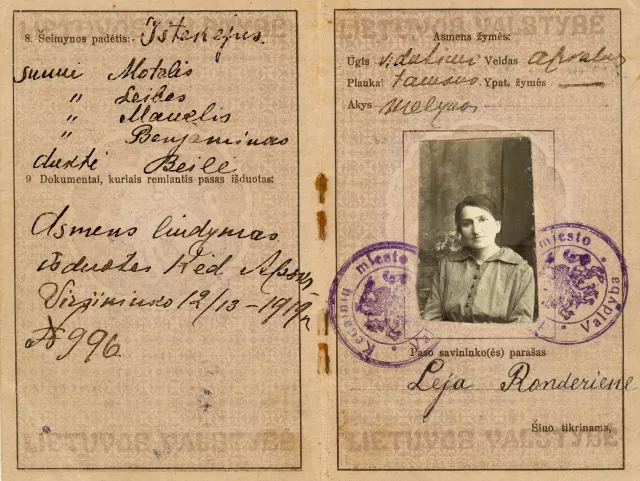 LIETUVOS VALSTYBĖ
8. Šeimynos padėtis: Ištekėjus.
sunui Motelis
" Leibas
" Mauelis
" Benjaminas
duktė Beilė
9 Dokumentai, kuriais remiantis pasas išduotas:
Asmens liudymas
išduotas Kėd. Apskr.
Viršininko 12/13-1919 m
№ 996.
LIETUVOS VALSTYBĖ
LIETUVOS VALSTYBĖ
Asmens žymės:
Ūgis vidutinis Veidas apvalus
Plaukai tamsus Ypat. žymės —
Akys mėlynos
Kėdainių miesto Valdyba
miesto Valdyba
Paso savininko(ės) parašas
Leja Ronderienė
Šiuo tikrinama,
LIETUVOS VALSTYBĖ